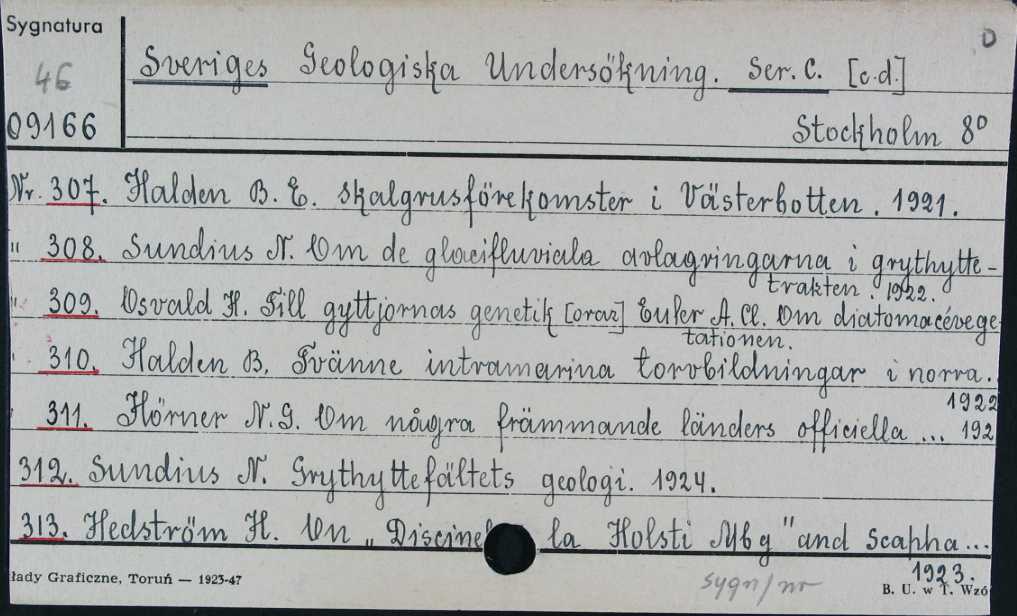 Sygnatura
46
09166
D
Sveriges Geologiska Undersökning. Ser. C. [c.d.]
Stockholm 8º
Nr. 307. Halden B. E. Skalgrusförekomster i Västerbotten. 1921.
" 308. Sundius N. Om de glacifluviala avlagringarna i grythytte-
trakten. 1922.
" 309. Osvald H. Till gyttjornas genetik [oraz] Euler A. Cl. Om diatomacévege
tationen.
310. Halden B. Tvänne intramarina torvbildningar i norra.
1922
311. Hörner N. G. Om några främmande länders officiella ... 192
312. Sundius N. Grythyttefältets geologi. 1924.
313. Hedström H. On „Discinella Holsti Mbg" and Scapha...
1923.
łady Graficzne, Toruń — 1923-47
sygn/nr
B. U. w T. Wzó